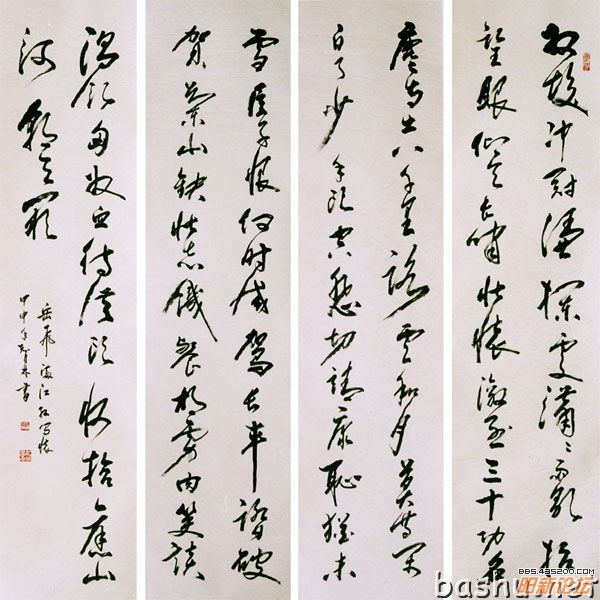 怒髮冲冠凭栏处潇〻雨歇抬
望眼仰天长啸壮怀激烈三十功名
尘与土八千里路云和月莫等闲
白了少年头空悲切靖康耻犹未
雪臣子恨何时灭驾长车踏破
贺兰山缺壮志饥餐胡虏肉笑谈
渴饮匈奴血待从头收拾旧山
河朝天阙
岳飞满江红写怀
甲申年书
BBS.435200.COM
阳新论坛